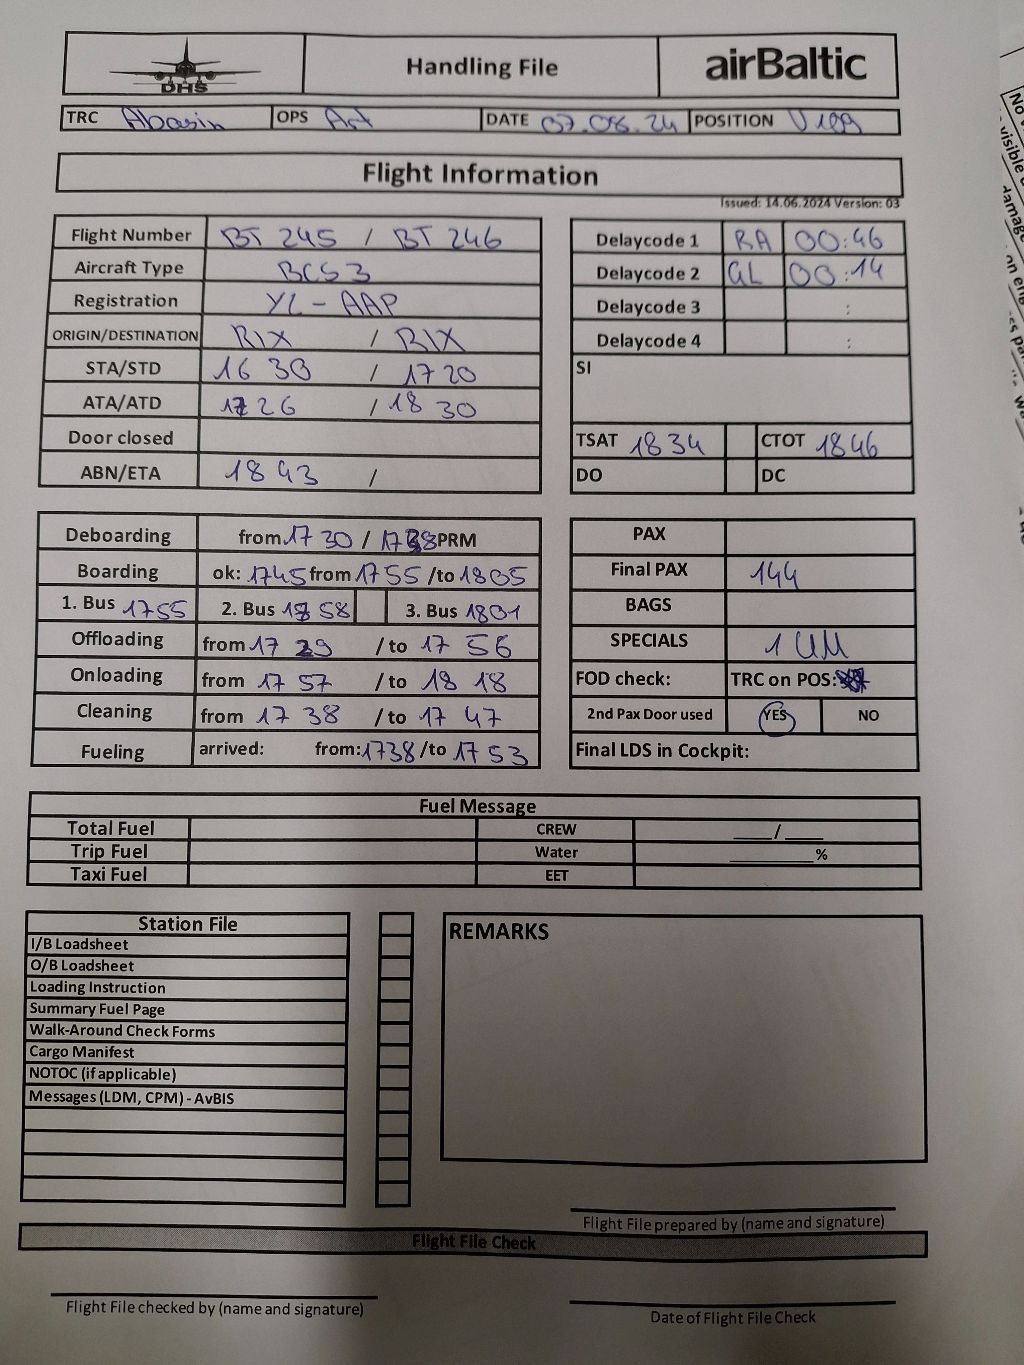 DHS Handling File airBaltic
TRC Abasin OPS Art DATE 07.08.24 POSITION V109
Flight Information
Issued: 14.06.2024 Version: 03
Flight Number BT 245 / BT 246
Aircraft Type BCS3
Registration YL-AAP
ORIGIN/DESTINATION RIX / RIX
STA/STD 16 30 / 17 20
ATA/ATD 17 26 / 18 30
Door closed
ABN/ETA 18 43 /
Delaycode 1 RA 00:46
Delaycode 2 GL 00:14
Delaycode 3 :
Delaycode 4 :
SI
TSAT 1834 CTOT 1846
DO DC
Deboarding from 17 30 / 1738 PRM
Boarding ok: 1745 from 1755 /to 1805
1. Bus 1755 2. Bus 1758 3. Bus 1801
Offloading from 17 29 /to 17 56
Onloading from 17 57 /to 18 18
Cleaning from 17 38 /to 17 47
Fueling arrived: from: 1738 /to 17 53
PAX
Final PAX 144
BAGS
SPECIALS 1 UM
FOD check: TRC on POS:
2nd Pax Door used YES NO
Final LDS in Cockpit:
Fuel Message
Total Fuel CREW ____/____
Trip Fuel Water _________%
Taxi Fuel EET
Station File
I/B Loadsheet
O/B Loadsheet
Loading Instruction
Summary Fuel Page
Walk-Around Check Forms
Cargo Manifest
NOTOC (if applicable)
Messages (LDM, CPM) - AvBIS
REMARKS
Flight File prepared by (name and signature)
Flight File Check
Flight File checked by (name and signature)
Date of Flight File Check